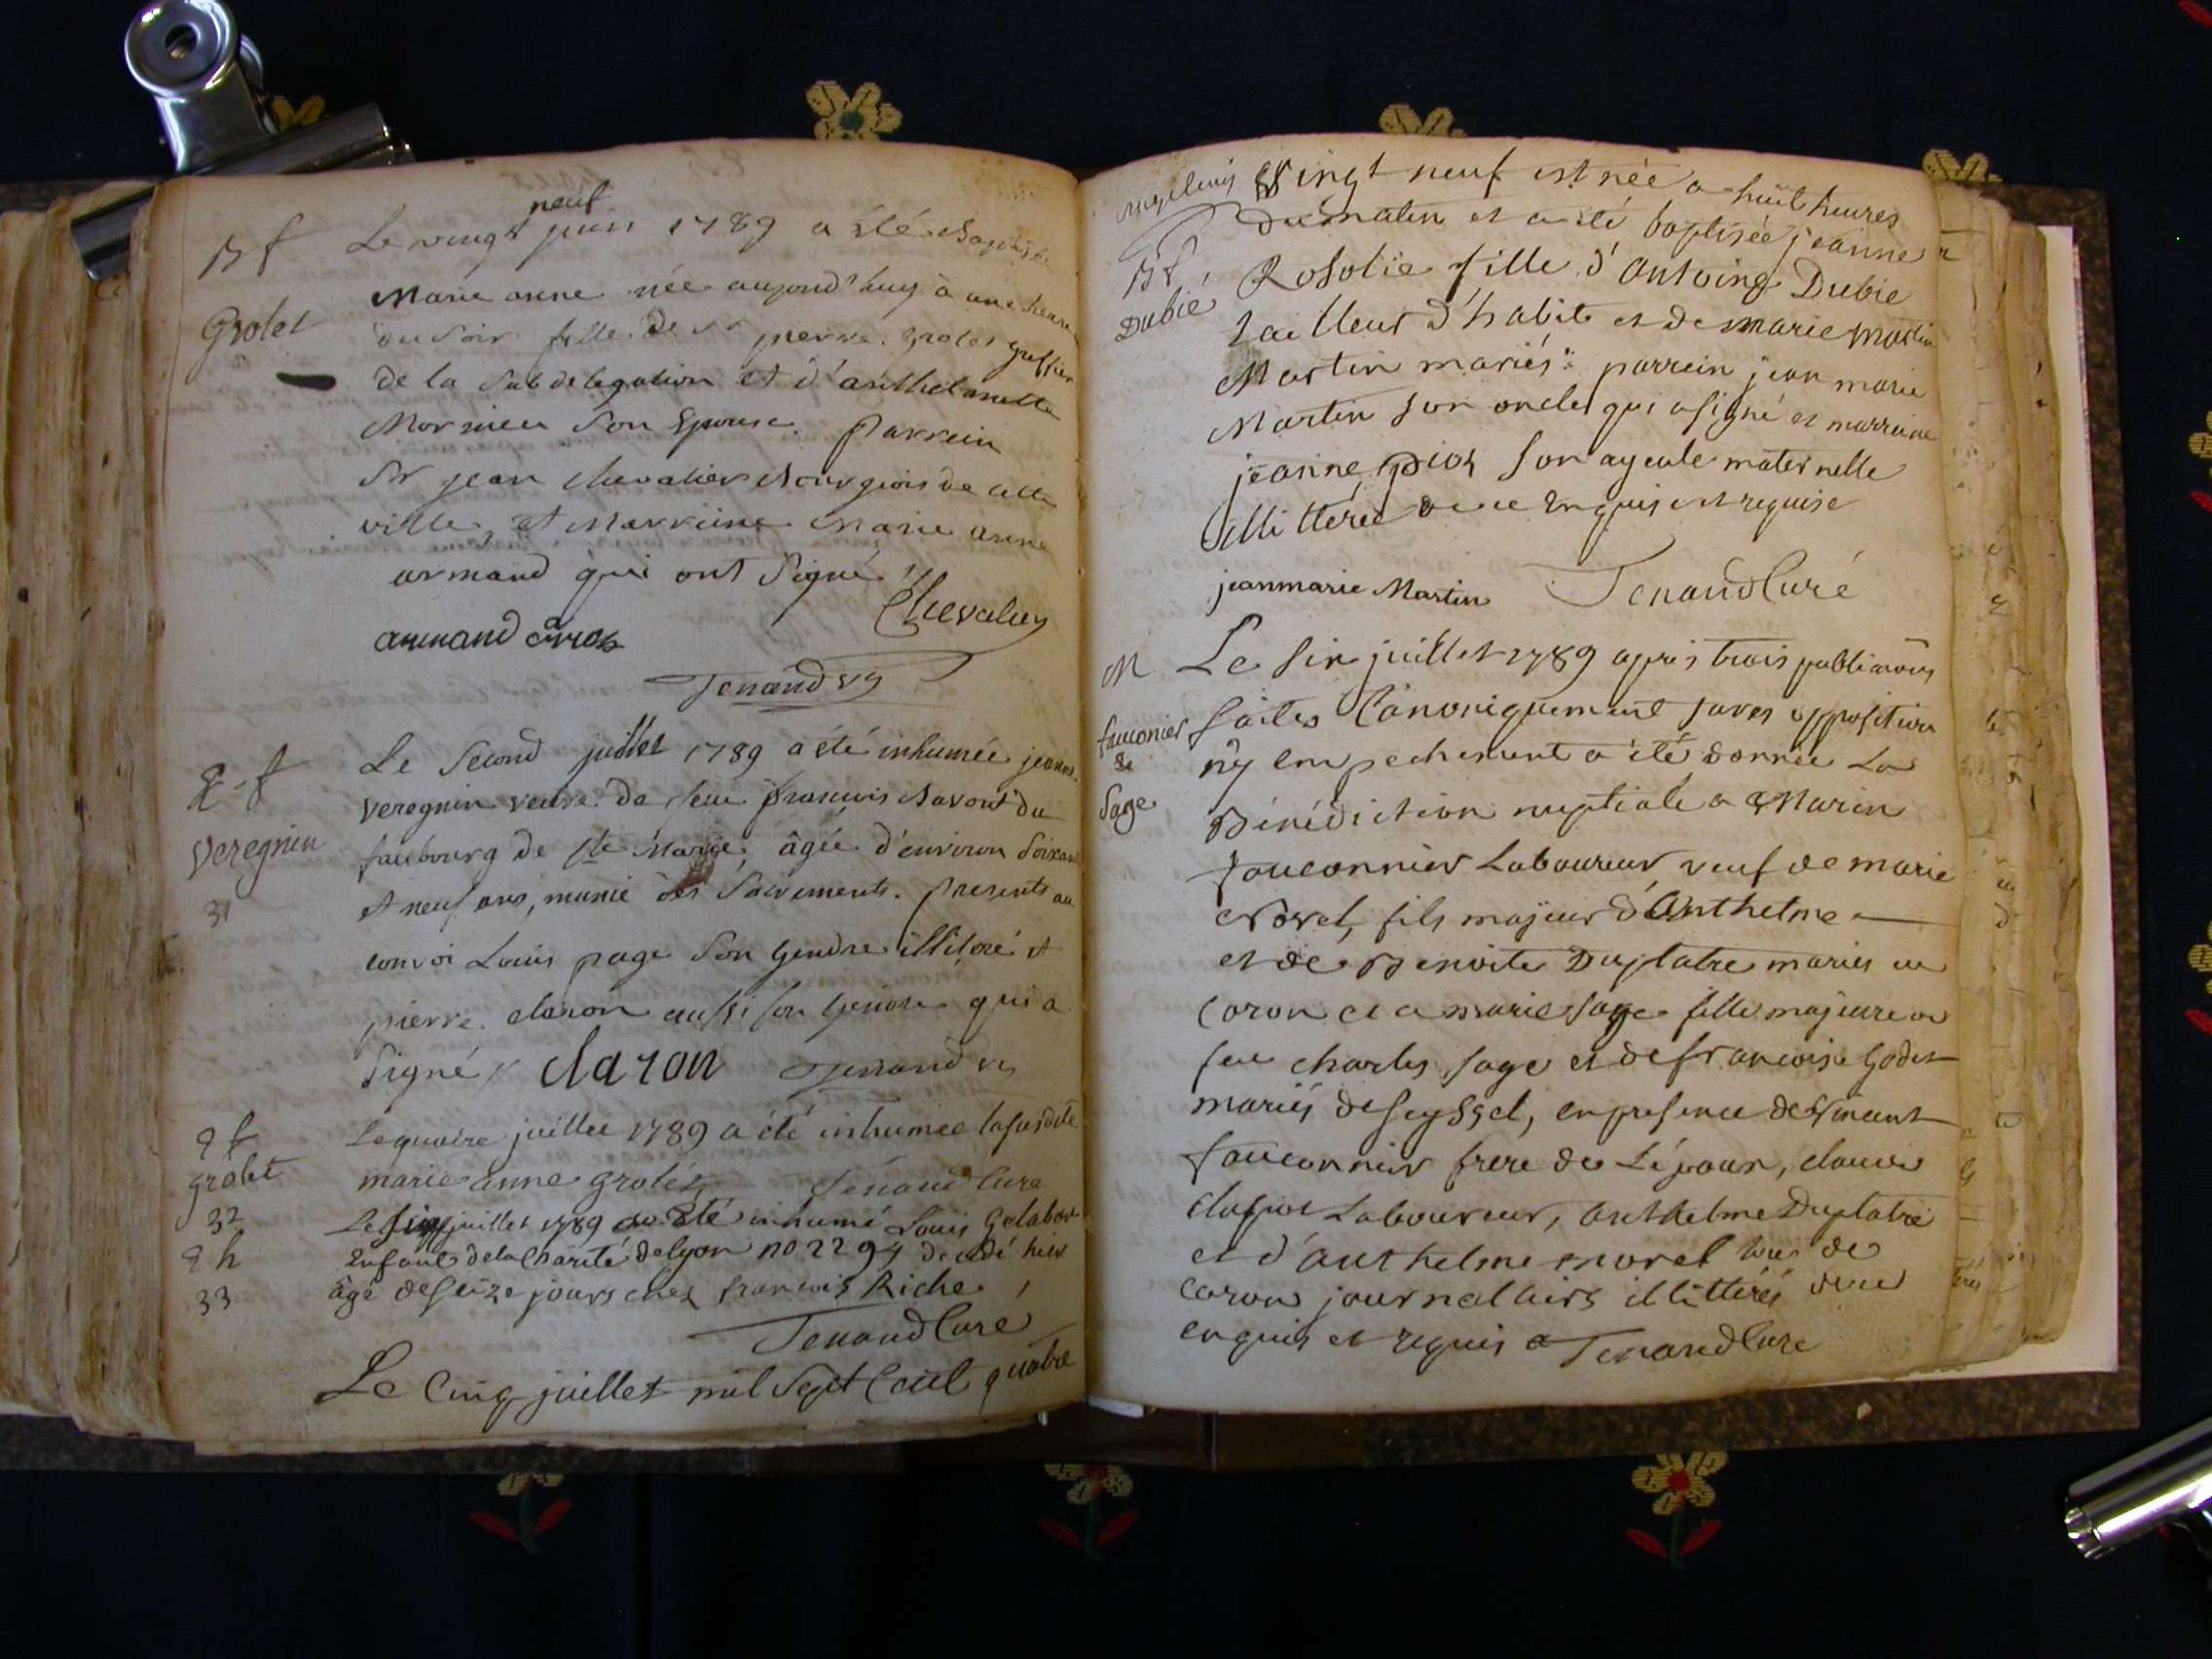 B f
Grolet
Le vingt neuf juin 1789 a été Baptisée
Marie anne née aujourd'huy à une heure
du soir fille de Sr pierre Grolet greffier
de la Subdelegation et d'anthelmette
Mornieu son Epouse. Parrein
Sr jean chevalier Bourgeois de cette
ville, et Marreine Marie anne
armand qui ont Signé
Chevalier
armand
Tenand
f
Veregnin
31
Le Second juillet 1789 a été inhumée jeanne
Veregnin veuve de feu francois du
faubourg de Ste Marie, âgée d'environ Soixante
et neuf ans, munie des Sacrements. Presents au
convoi Louis page Son Gendre illitéré et
pierre claron aussi son Gendre qui a
Signé claron Tenand
f
grolet
32
Le quatre juillet 1789 a été inhumée la susdite
marie anne grolet Tenand Curé
h
33
Le Six juillet 1789 a Eté inhumé Louis
Enfant de la Charité de lyon no 2294 decedé hier
âgé de seize jours chez francois Riche
Tenand Curé
Le Cinq juillet mil Sept Cent quatre
vingt neuf est née a huit heures
du matin et a été baptisée jeanne
B f
Dubié
Rosolie fille d'Antoine Dubie
tailleur d'habits et de marie Martin
Martin mariés: parrein jean marie
Martin son oncle qui a signé et marreine
jeanne son ayeule maternelle
illittérée de ce Enquise et requise
jeanmarie Martin Tenand Curé
M
fauconier
&
Sage
Le Six juillet 1789 après trois publications
faites Canoniquement sans opposition
ny empechement a été donnée La
Bénédiction nuptiale a Marin
fauconnier Laboureur, veuf de marie
Novel, fils majeur d'Anthelme
et de Benoite Duplatre mariés de
Coron et a marie Sage fille majeure de
feu charles Sage et de francoise Godet
mariés de Seyssel, en presence de
fauconnier frere de L'époux, claude
Laboureur, Anthelme Duplatre
et d'Anthelme novel tous de
Coron journalliers illittérés de ce
enquis et requis Tenand Curé